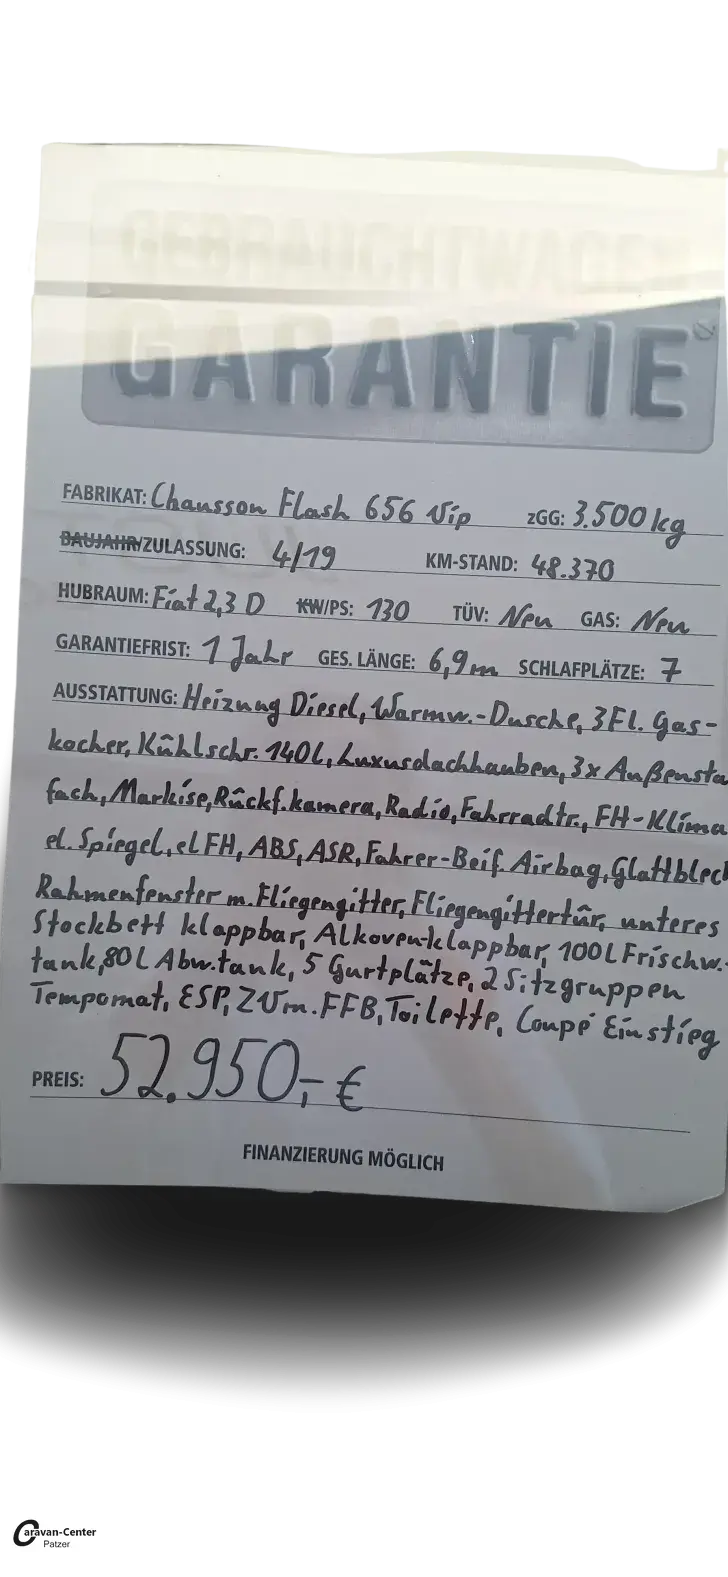 GEBRAUCHTWAGEN
GARANTIE
FABRIKAT: Chausson Flash 656 Vip zGG: 3.500 kg
BAUJAHR/ZULASSUNG: 4/19 KM-STAND: 48.370
HUBRAUM: Fiat 2,3 D KW/PS: 130 TÜV: Neu GAS: Neu
GARANTIEFRIST: 1 Jahr GES. LÄNGE: 6,9m SCHLAFPLÄTZE: 7
AUSSTATTUNG: Heizung Diesel, Warmw.-Dusche, 3Fl. Gas-
kocher, Kühlschr. 140L, Luxusdachhauben, 3x Außensta
fach, Markise, Rückf.kamera, Radio, Fahrradtr., FH-Klima
el. Spiegel, el FH, ABS, ASR, Fahrer-Beif. Airbag, Glattblech
Rahmenfenster m. Fliegengitter, Fliegengittertür, unteres
Stockbett klappbar, Alkoven klappbar, 100L Frischw.-
tank, 80L Abw.tank, 5 Gurtplätze, 2 Sitzgruppen
Tempomat, ESP, ZV m. FFB, Toilette, Coupé Einstieg
PREIS: 52.950,- €
FINANZIERUNG MÖGLICH
Caravan-Center
Patzer